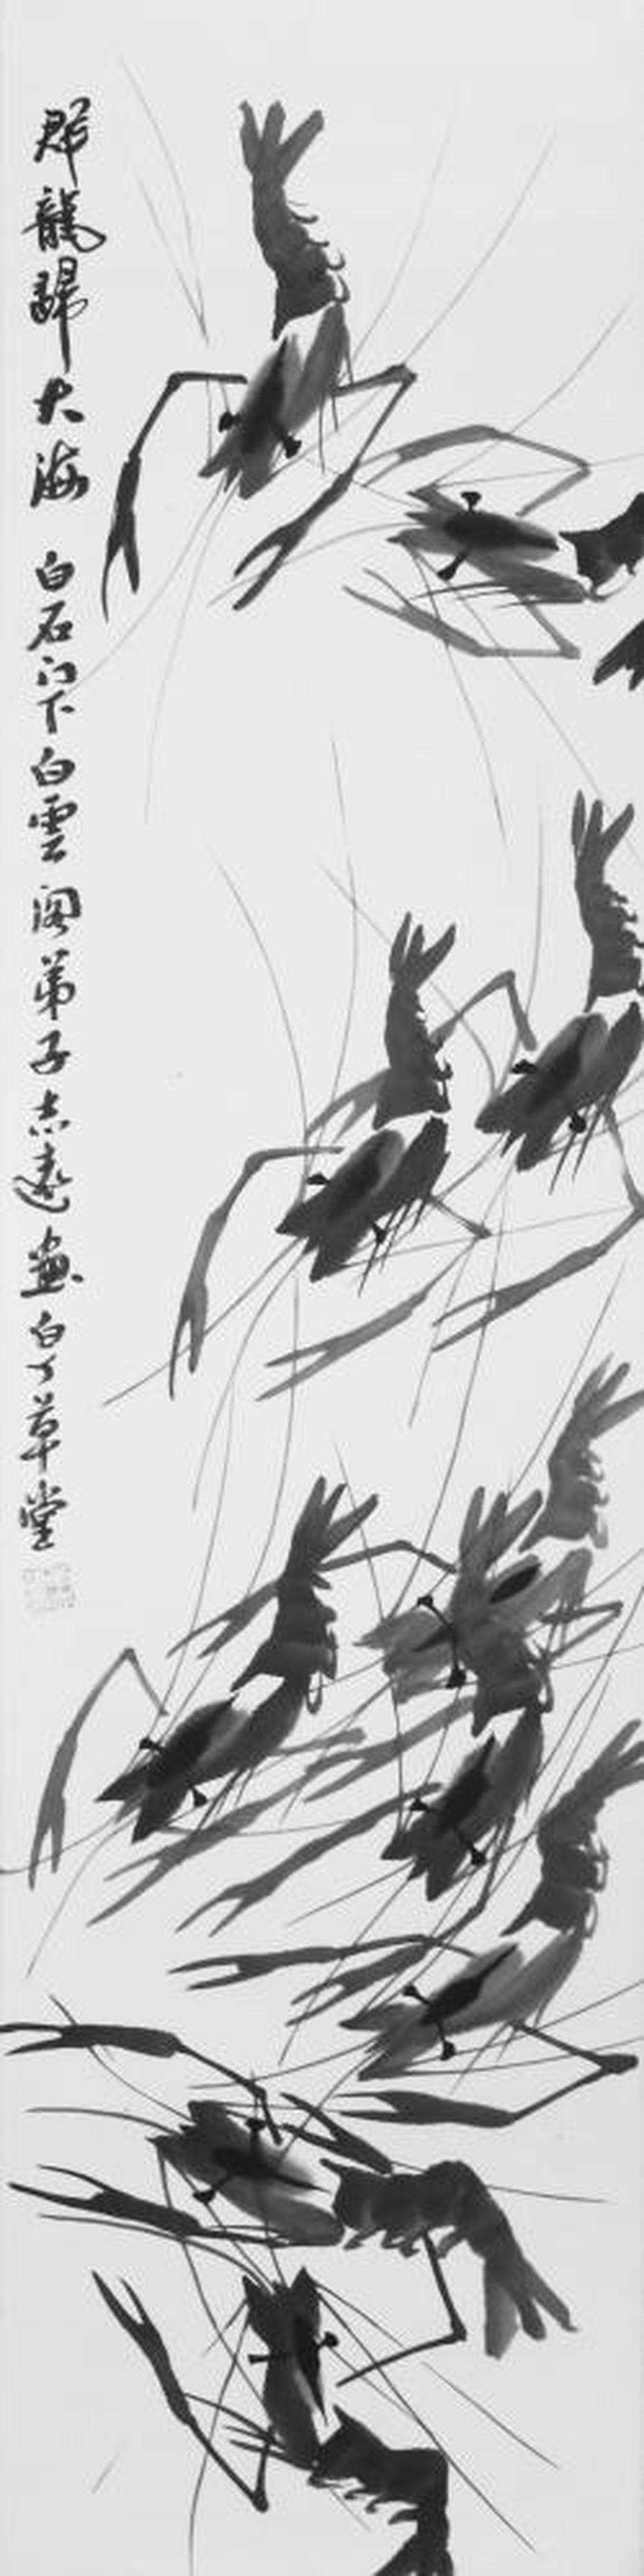 群龍歸大海 白石門下白雲閣弟子志遠畫白丁草堂